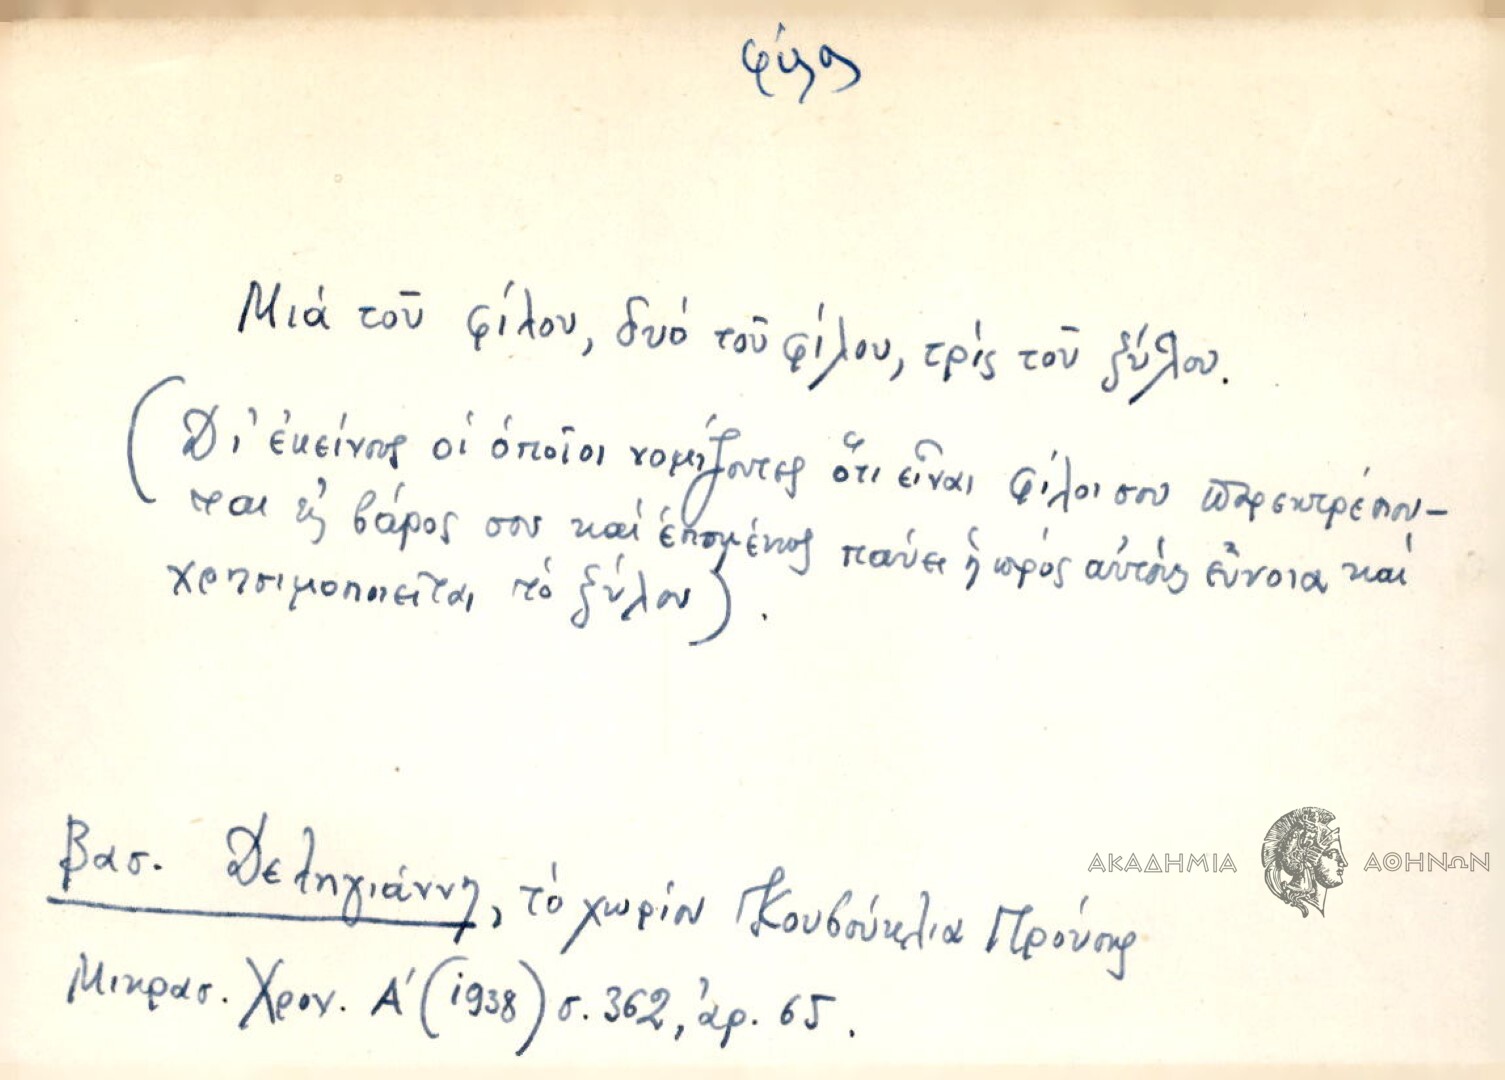 φίλος
Μιά τοῦ φίλου, δυό τοῦ φίλου, τρίς τοῦ ξύλου.
(Δι' ἐκείνους οἱ ὁποῖοι νομίζοντες ὅτι εἶναι φίλοι σου παρεκτρέπον-
ται εἰς βάρος σου καί ἑπομένως παύει ἡ πρός αὐτούς εὔνοια καί
χρησιμοποιεῖται τό ξύλον).
Βασ. Δεληγιάννη, τό χωρίον Κουβούκλια Προύσης
Μικρασ. Χρον. Α' (1938) σ. 362, ἀρ. 65.
ΑΚΑΔΗΜΙΑ ΑΘΗΝΩΝ